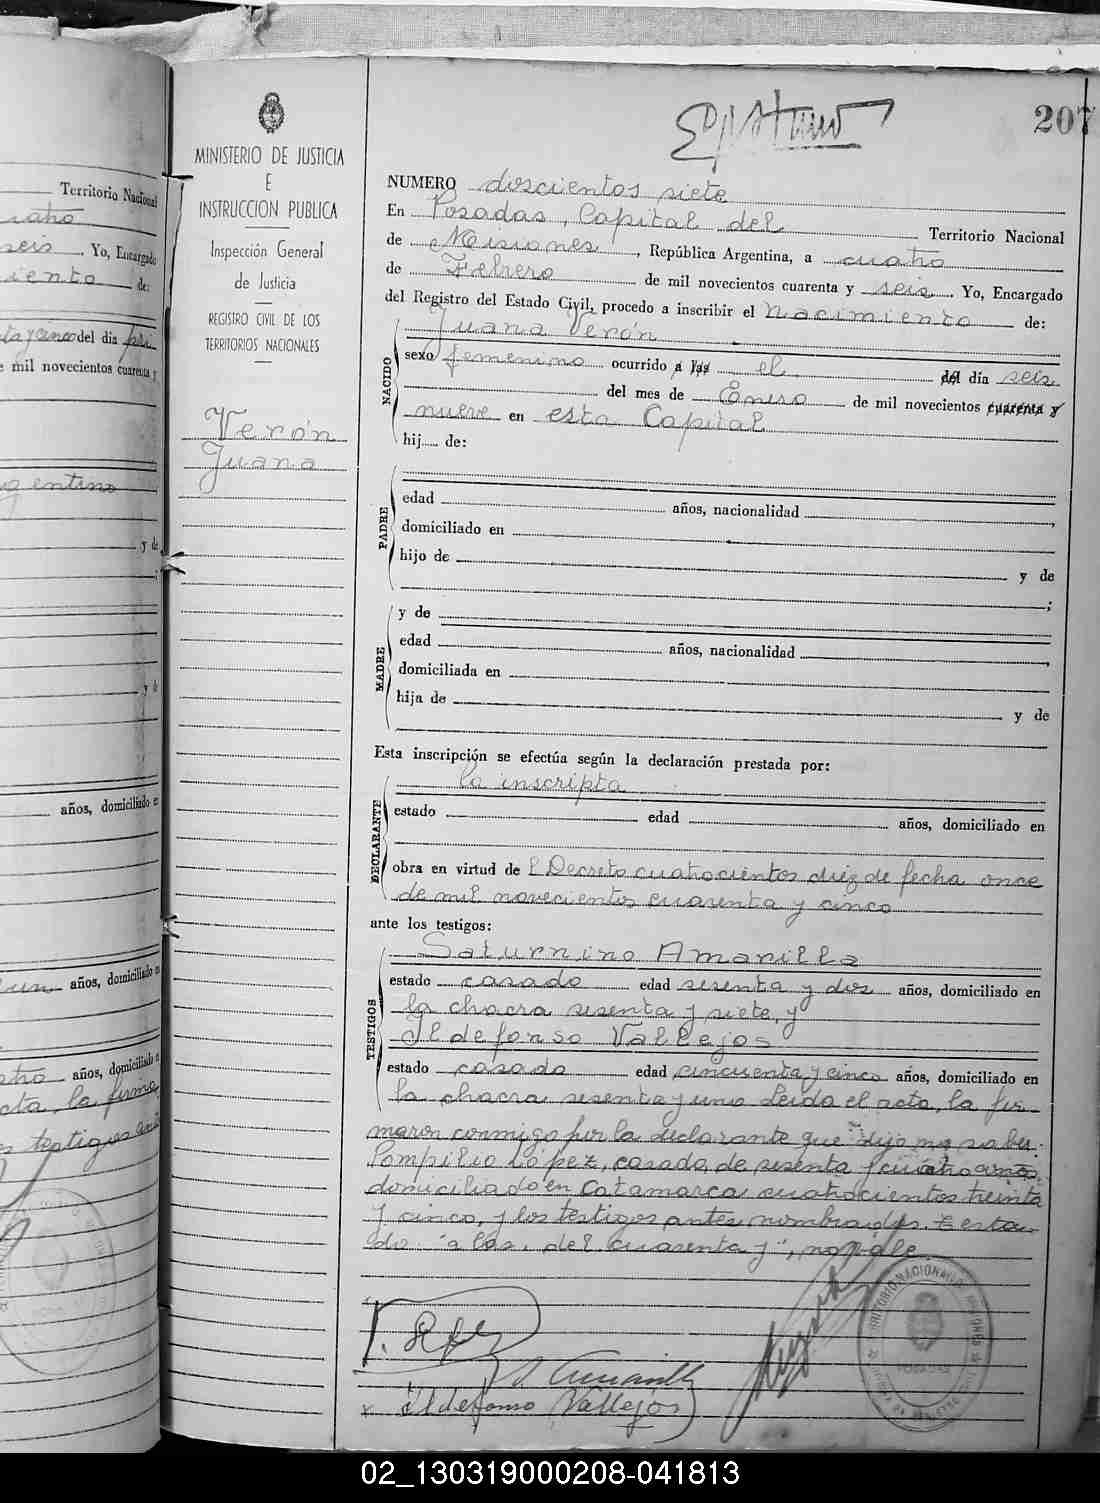 Territorio Nacional
seis . Yo, Encargado
iento de:
del día
e mil novecientos cuarenta y
gentino
y de
;
y de
años, domiciliado en
un años, domiciliado en
años, domiciliado en
acta, la firma
testigos
MINISTERIO DE JUSTICIA
E
INSTRUCCION PUBLICA
Inspección General
de Justicia
REGISTRO CIVIL DE LOS
TERRITORIOS NACIONALES
Verón
Juana
207
NUMERO doscientos siete
En Posadas, Capital del Territorio Nacional
de Misiones, República Argentina, a cuatro
de Febrero de mil novecientos cuarenta y seis. Yo, Encargado
del Registro del Estado Civil, procedo a inscribir el Nacimiento de:
NACIDO
Juana Verón
sexo femenino ocurrido a las el del día seis
del mes de Enero de mil novecientos cuarenta y
nueve en esta Capital
hij de:
PADRE
edad años, nacionalidad ,
domiciliado en
hijo de y de
;
MADRE
y de
edad años, nacionalidad ,
domiciliada en
hija de y de
Esta inscripción se efectúa según la declaración prestada por:
DECLARANTE
la inscripta
estado edad años, domiciliado en
obra en virtud de l Decreto cuatrocientos diez de fecha once
de mil novecientos cuarenta y cinco
ante los testigos:
TESTIGOS
Saturnino Amarilla
estado casado edad sesenta y dos años, domiciliado en
la chacra sesenta y siete, y
Ildefonso Vallejos
estado casado edad cincuenta y cinco años, domiciliado en
la chacra sesenta y uno Leída el acta, la fir-
maron conmigo por la declarante que dijo no saber:
Pompilio López, casado, de sesenta y cuatro años,
domiciliado en Catamarca cuatrocientos treinta
y cinco, y los testigos antes nombrados. Testa-
do "a las, del cuarenta y", no vale.
S. Amarilla
x Ildefonso Vallejos
POSADAS
02_130319000208-041813